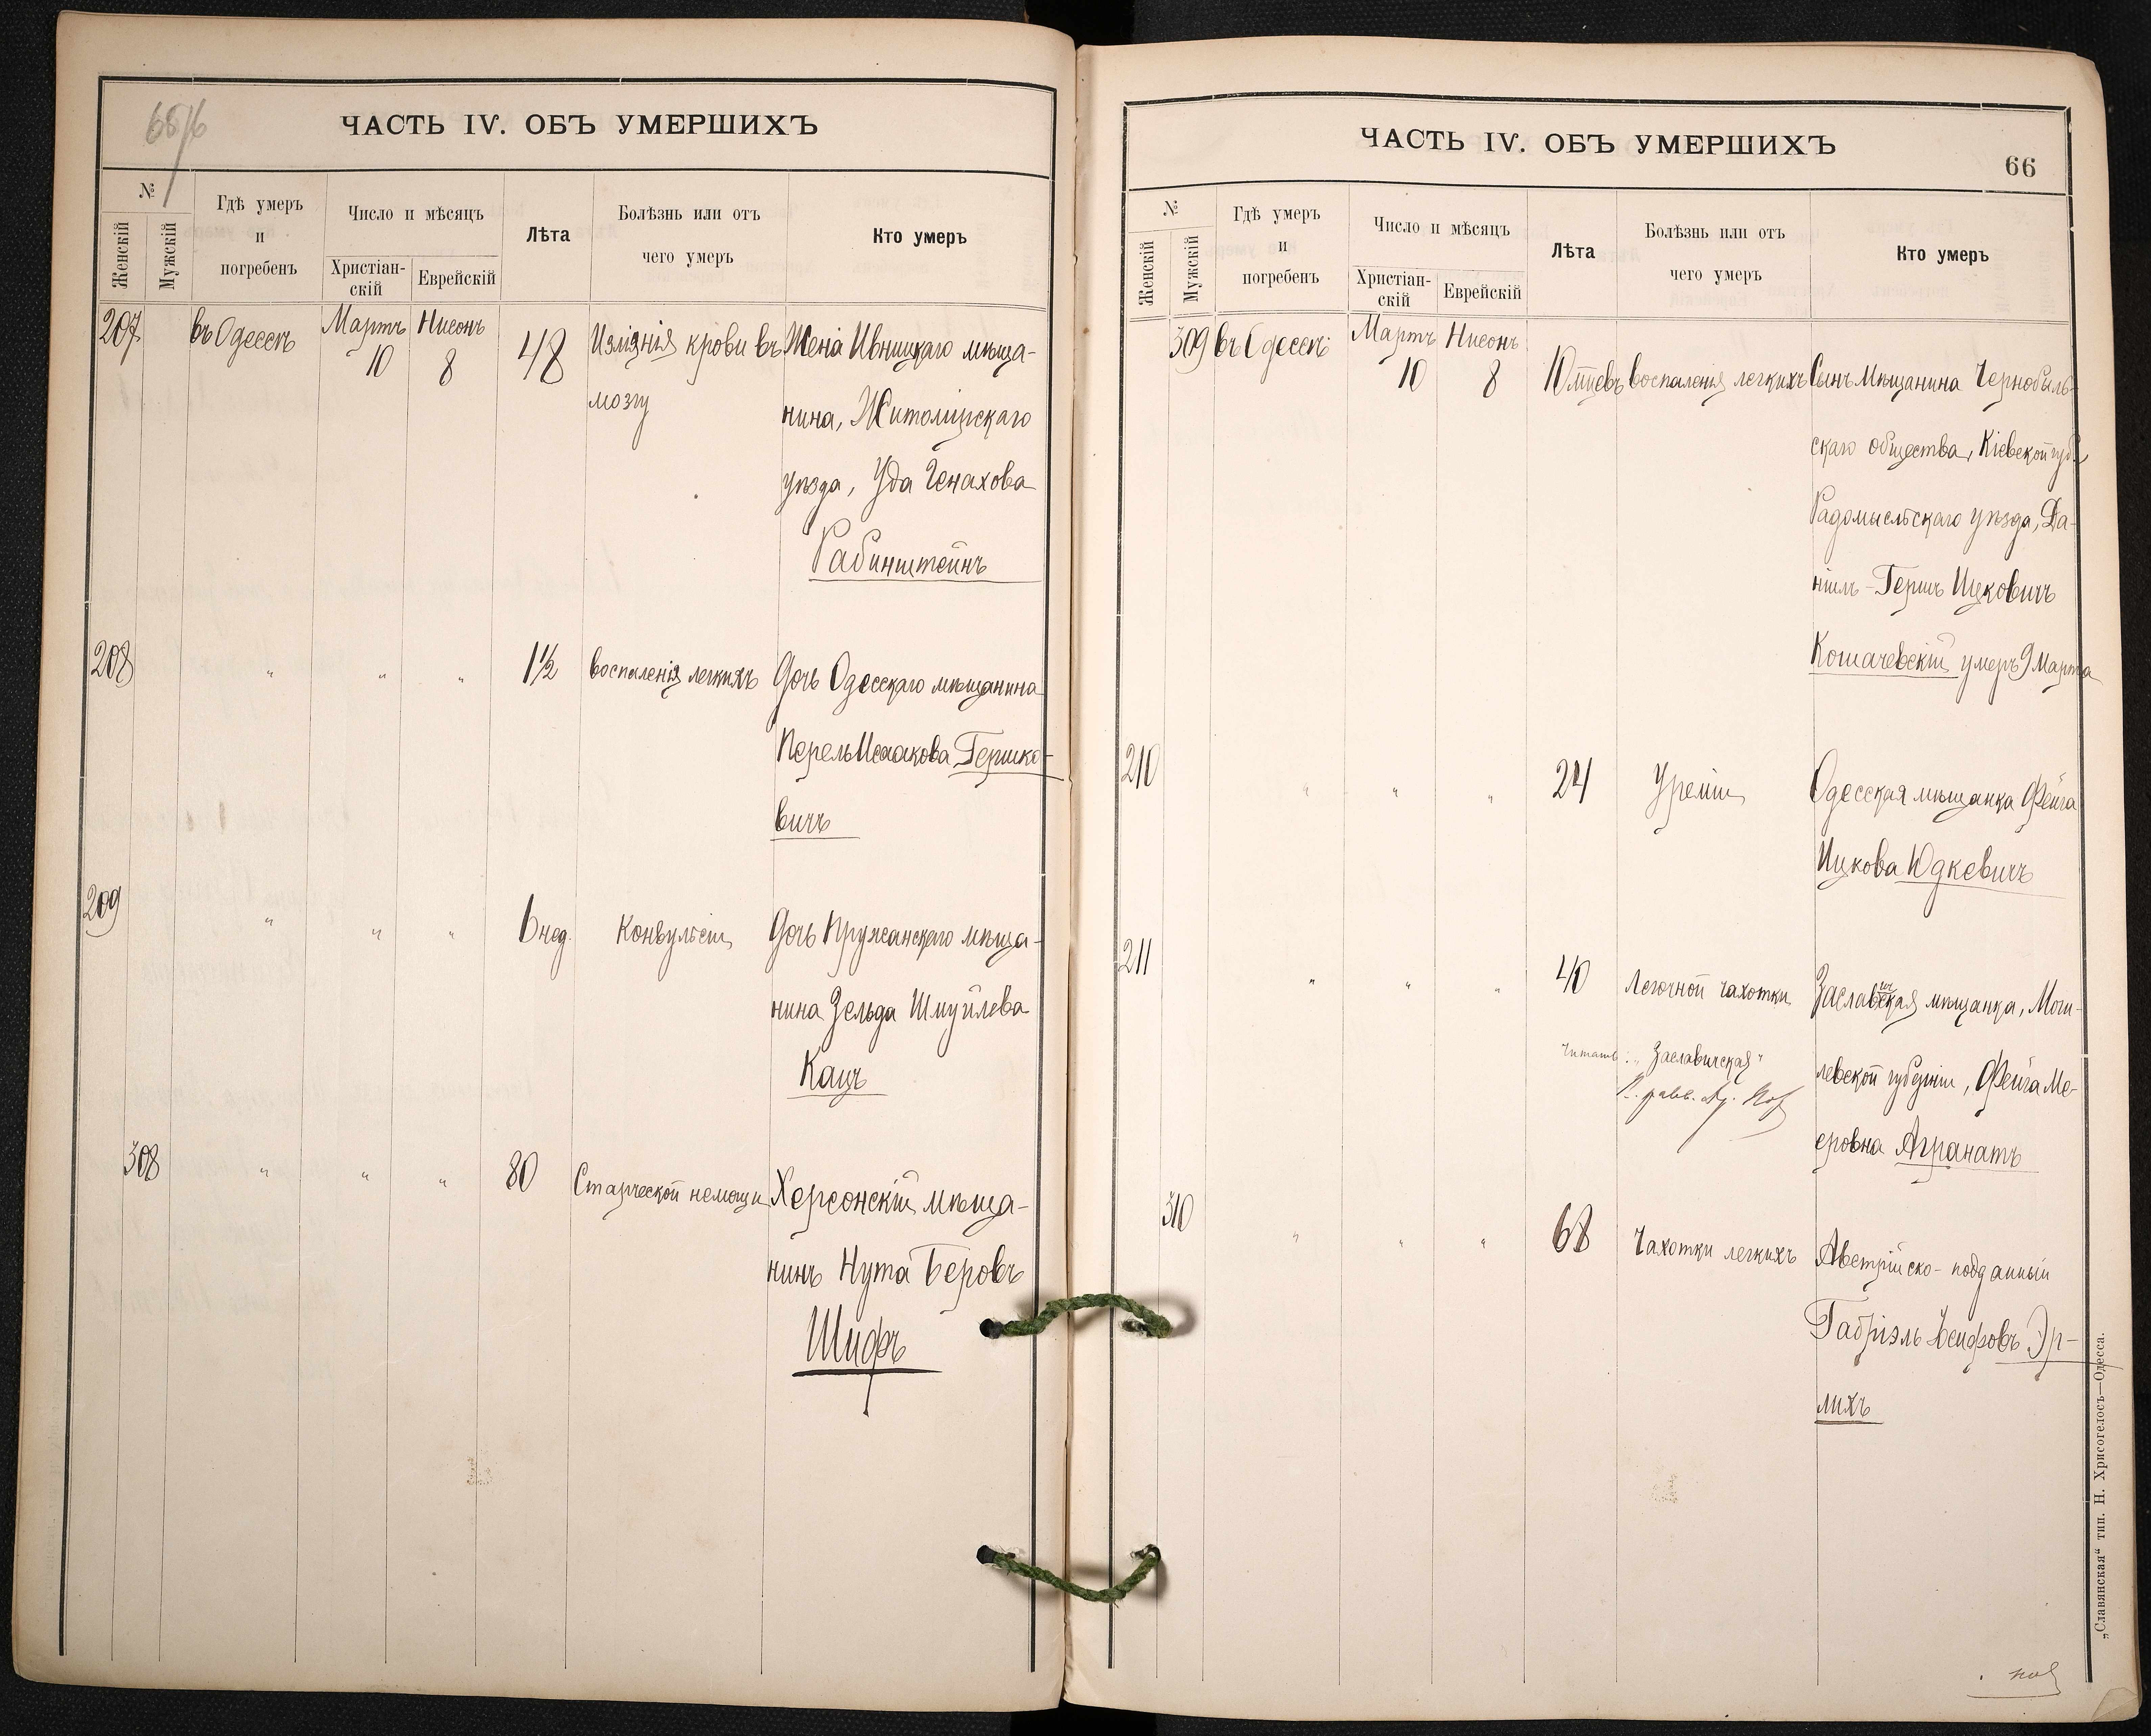 65/6
ЧАСТЬ IV. ОБЪ УМЕРШИХЪ
№
Женскій
Мужскій
Гдѣ умеръ
и
погребенъ
Число и мѣсяцъ
Христіан-
скій
Еврейскій
Лѣта
Болѣзнь или отъ
чего умеръ
Кто умеръ
207 въ Одессѣ Мартъ 10 Нисонъ 8 48 Изліянія крови въ Жена Ивницкаго мѣща-
мозгу нина, Житомірскаго
уѣзда, Уда Генахова
Рабинштейнъ
208 " " " 1½ воспаленія легкихъ Дочь Одесскаго мѣщанина
Перель Исааковa Гершко-
вичъ
209 " " " 6 нед. Конвульсіи Дочь Пружанскаго мѣща-
нина Зельда Шмуйлева
Кацъ
308 " " " 80 Старческой немощи Херсонскій мѣща-
нинъ Нута Беровъ
Шифъ
ЧАСТЬ IV. ОБЪ УМЕРШИХЪ
66
№
Женскій
Мужскій
Гдѣ умеръ
и
погребенъ
Число и мѣсяцъ
Христіан-
скій
Еврейскій
Лѣта
Болѣзнь или отъ
чего умеръ
Кто умеръ
309 въ Одессѣ Мартъ 10 Нисонъ 8 10 мѣсв воспаленія легкихъ Сынъ Мѣщанина Чернобыль-
скаго общества, Кіевской губ.
Радомысльскаго уѣзда, Да-
ніилъ-Гершъ Ицковичъ
Кошачевскій умеръ 9 Марта
210 " " " 24 Уреміи Одесская мѣщанка Фейга
Ицкова Юдкевичъ
211 " " " 40 Легочной чахотки Заславская мѣщанка, Моги-
ич
читать: "Заславичская" левской губерніи, Фейга Ме-
еровна Агранатъ
310 " " " 68 Чахотки легкихъ Австрійско-подданный
Габріэль Іосифовъ Эр-
лихъ
„Славянская“ тип. Н. Хрисогелосъ—Одесса.